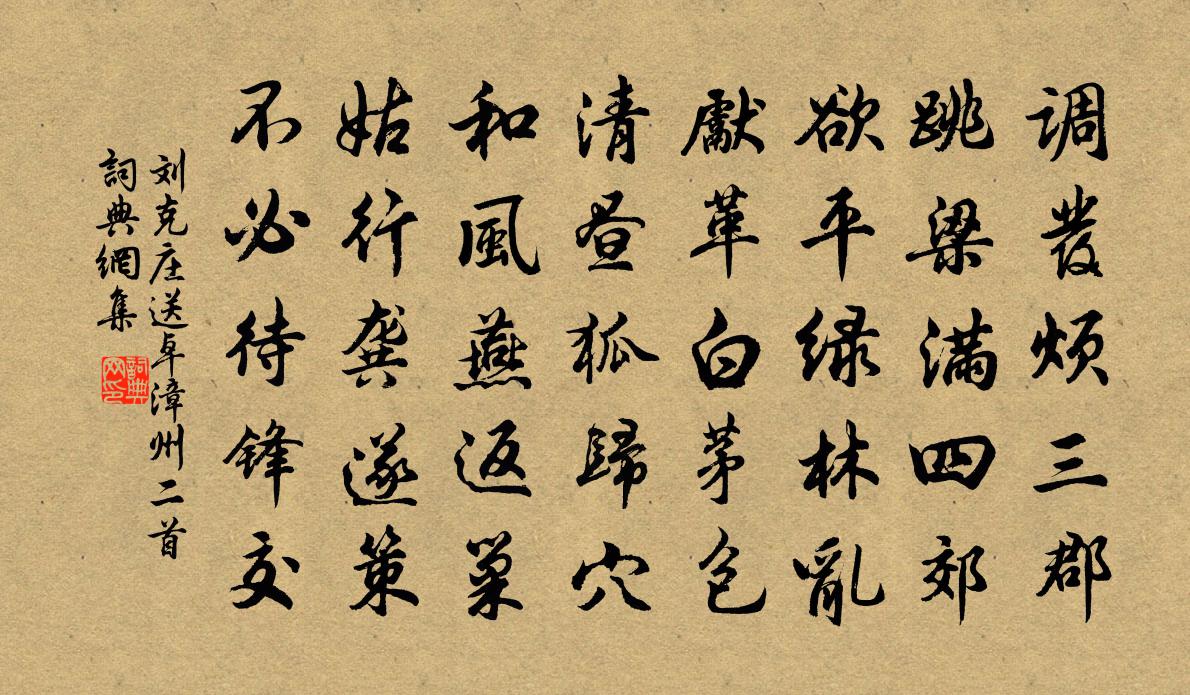 调發烦三郡
跳梁满四郊
欲平绿林亂
獻革白茅包
清昼狐歸穴
和風燕返巢
姑行龚遂策
不必待锋交
刘克庄送卓漳州二首
詞典網集
詞典网印